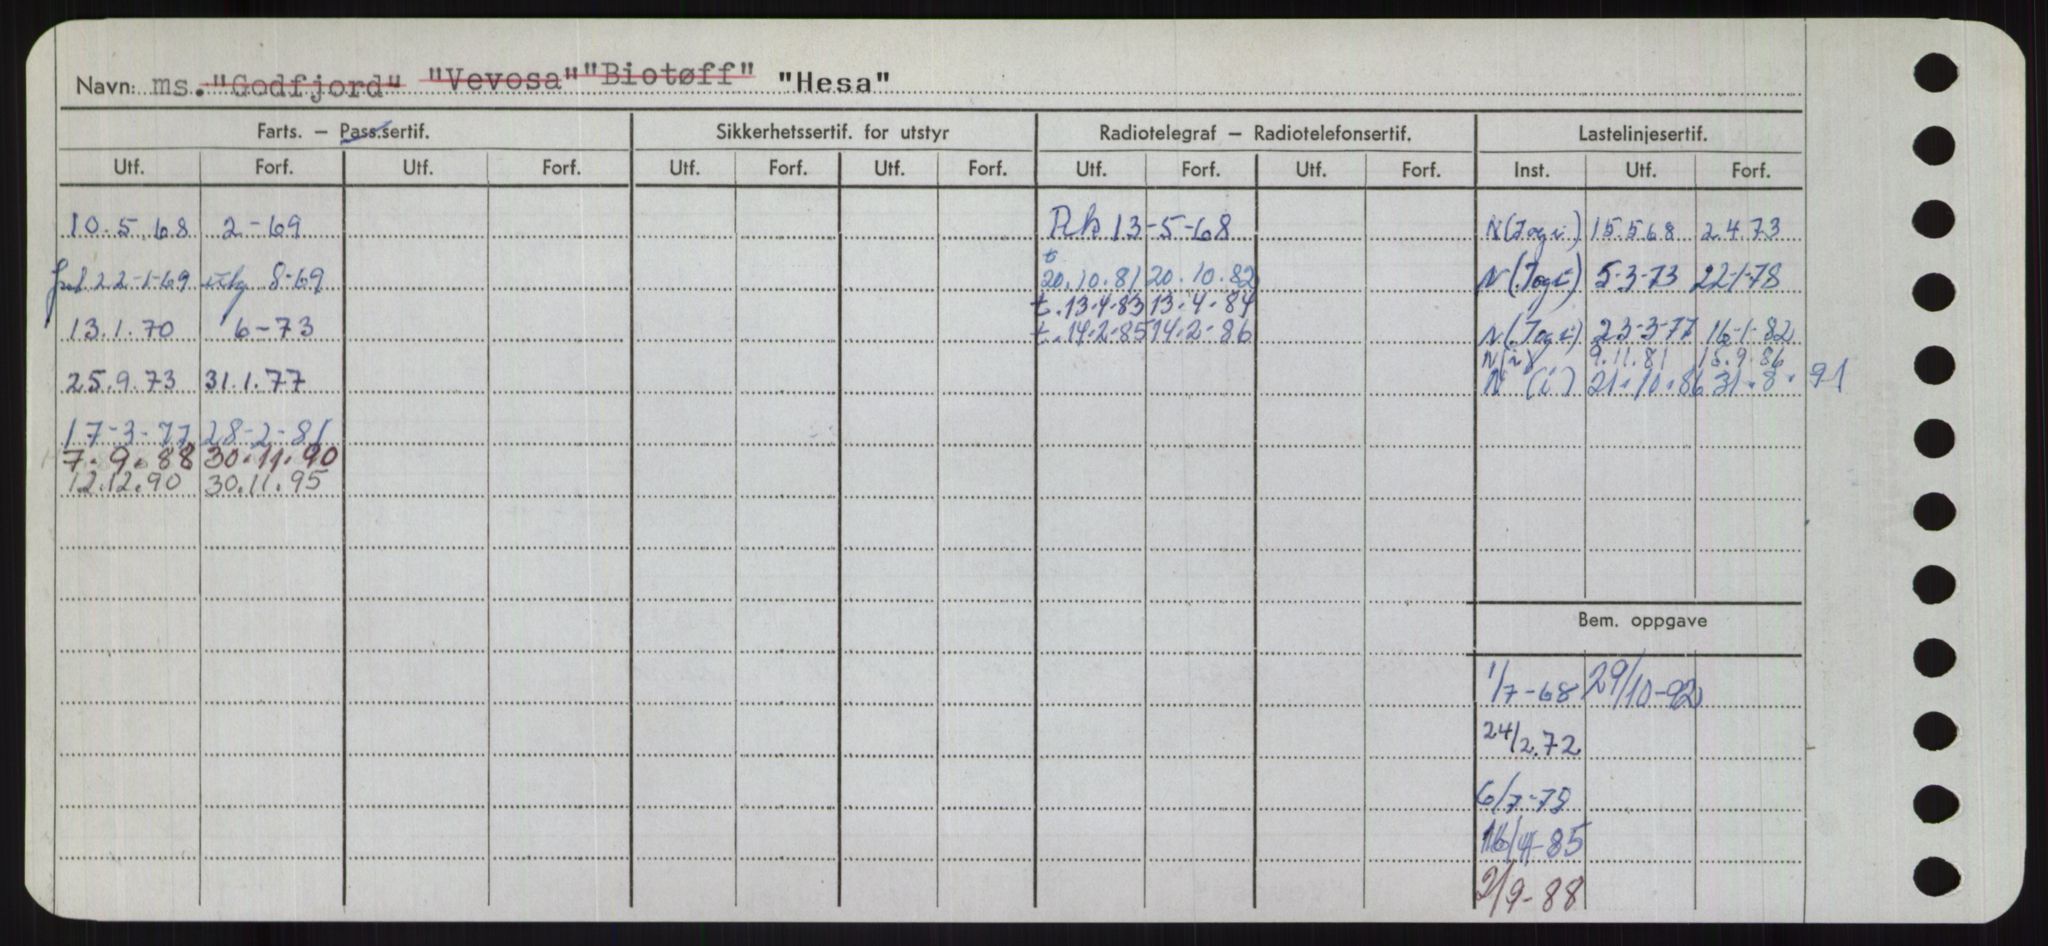 Navn: ms. "Godfjord" "Vevosa" "Biotøff" "Hesa"
Farts. – Pass.sertif. Sikkerhetssertif. for utstyr Radiotelegraf – Radiotelefonsertif. Lastelinjesertif.
Utf. Forf. Utf. Forf. Utf. Forf. Utf. Forf. Utf. Forf. Utf. Forf. Inst. Utf. Forf.
10.5.68 2-69 Rk 13-5-68 N 15.5.68 2.4.73
22-1-69 8-69 t 20.10.81 20.10.82 N 5-3-73 22-1-78
t.13.4.83 13.4.84
13.1.70 6-73 t.14.2.85 14.2-86 N 23-3-77 16-1-82
N 9.11.81 15.9.86
25.9.73 31.1.77 N (i) 21.10.86 31.8.91
17-3-77 28-2-81
7.9.88 30.11.90
12.12.90 30.11.95
Bem. oppgave
1/7-68 29/10-92
24/2.72
6/7-79
16/4-85
2/9-88